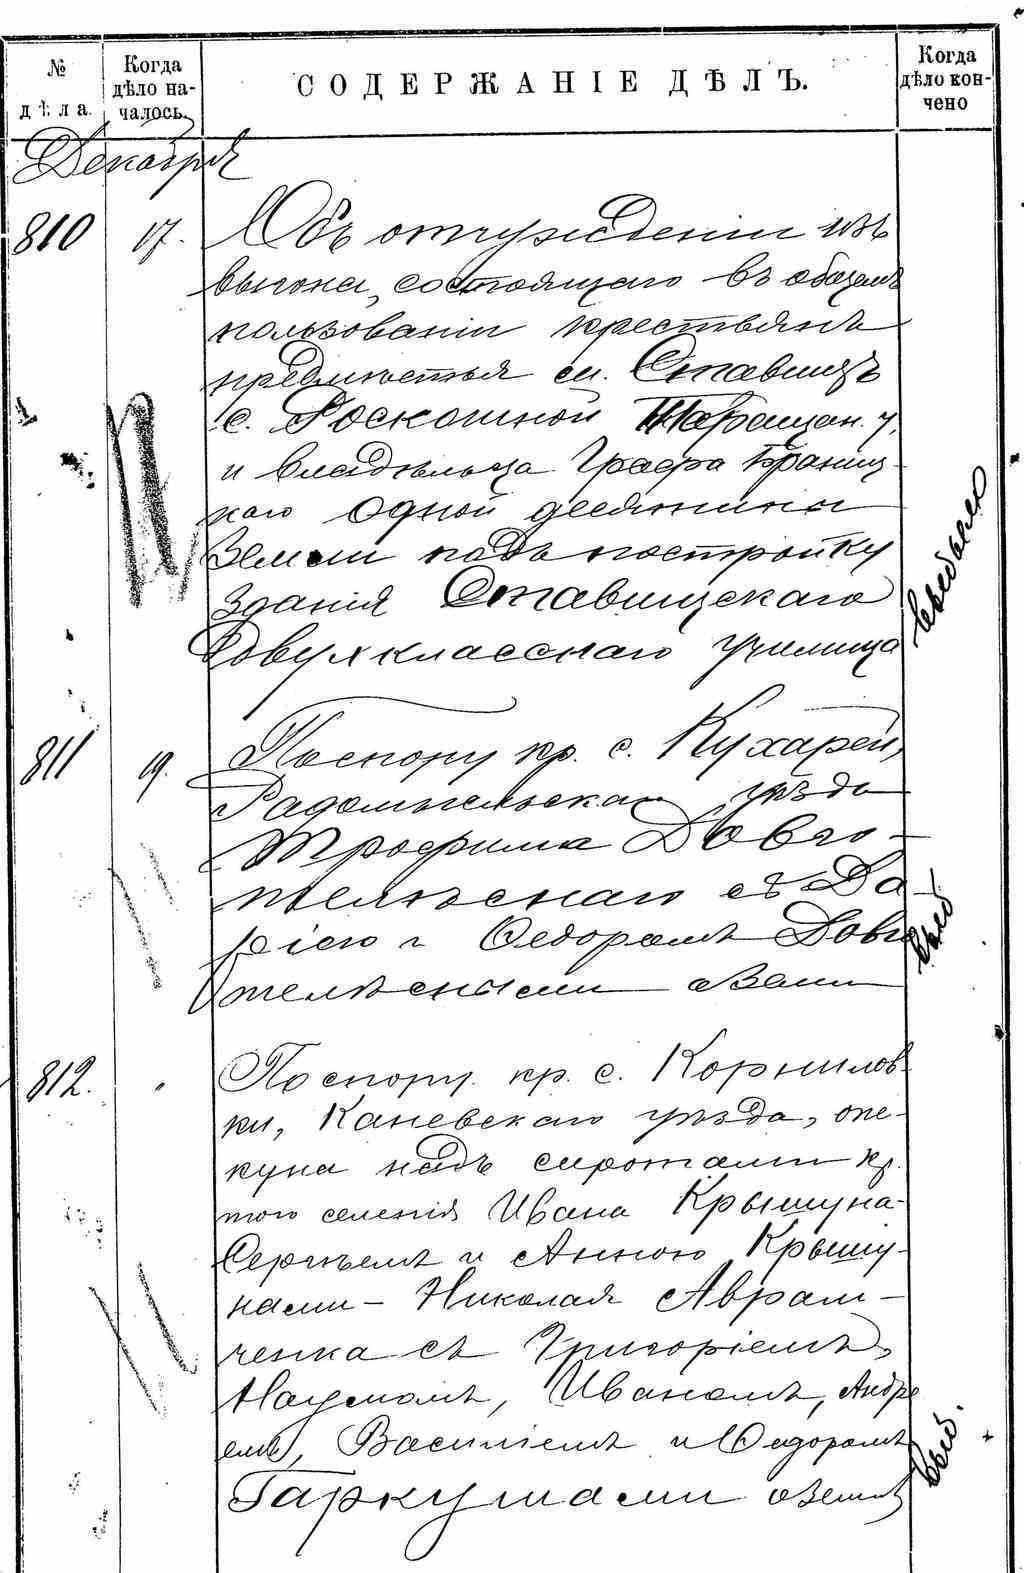 № дѣла.
Когда дѣло началось.
СОДЕРЖАНІЕ ДѢЛЪ.
Когда дѣло кончено
Декабря
810 17. Объ отчужденіи изъ
выгона, состоящаго въ общемъ
пользованіи крестьянъ
предмѣстья м. Ставищъ
с. Роскошной Таращан. у.
и владѣльца Графа Браниц-
каго одной десятины
земли подъ постройку
зданія Ставищскаго
двухкласснаго училища
выбыло
811 19. По спору кр. с. Кухарей,
Радомысльскаго уѣзда
Трофима Довго-
пелюснаго съ Да-
ріею и Федоромъ
о земли
выб
812. " По спору кр. с. Корнилов-
ки, Каневскаго уѣзда, опе-
куна надъ сиротами кр.
того селенія Ивана Крышуна-
Сергѣемъ и Анною Крышу-
нами - Николая Аврам-
ченка съ Григоріемъ,
Наумомъ, Иваномъ, Андре
емъ, Василіемъ и Федоромъ
Гаркушами о землѣ
выб.